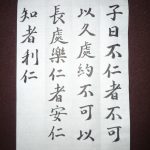 子曰不仁者不可
以久處約不可以
長處樂仁者安仁
知者利仁